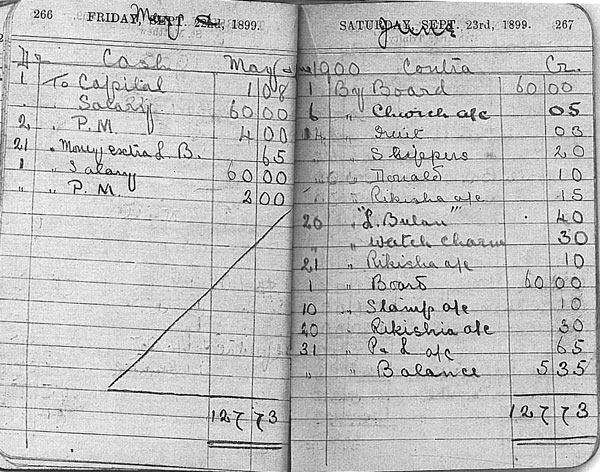 266 FRIDAY, SEPT. 22nd, 1899.
May &
Dr Cash May & June
1 To Capital 1 08
" " Salary 60 00
2 " P.M. 4 00
21 " Money extra L.B. 65
1 " Salary 60 00
" " P.M. 2 00
127 73
SATURDAY, SEPT. 23rd, 1899. 267
June
1900 Contra Cr.
1 By Board 60 00
6 " Church a/c 05
14 " Fruit 03
" " Slippers 20
" " 10
" " Rikisha a/c 15
20 " "L. Bulan" 40
" " watch charm 30
21 " Rikisha a/c 10
1 " Board 60 00
10 " Stamp a/c 10
20 " Rikishia a/c 30
31 " P & L a/c 65
" " Balance 5 35
127 73